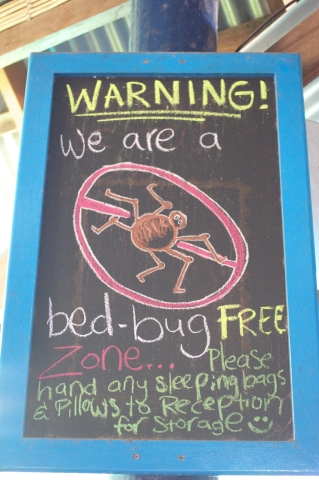 WARNING!
We are a
bed-bug FREE
Zone... Please
hand any sleeping bags
& Pillows to Reception
for Storage